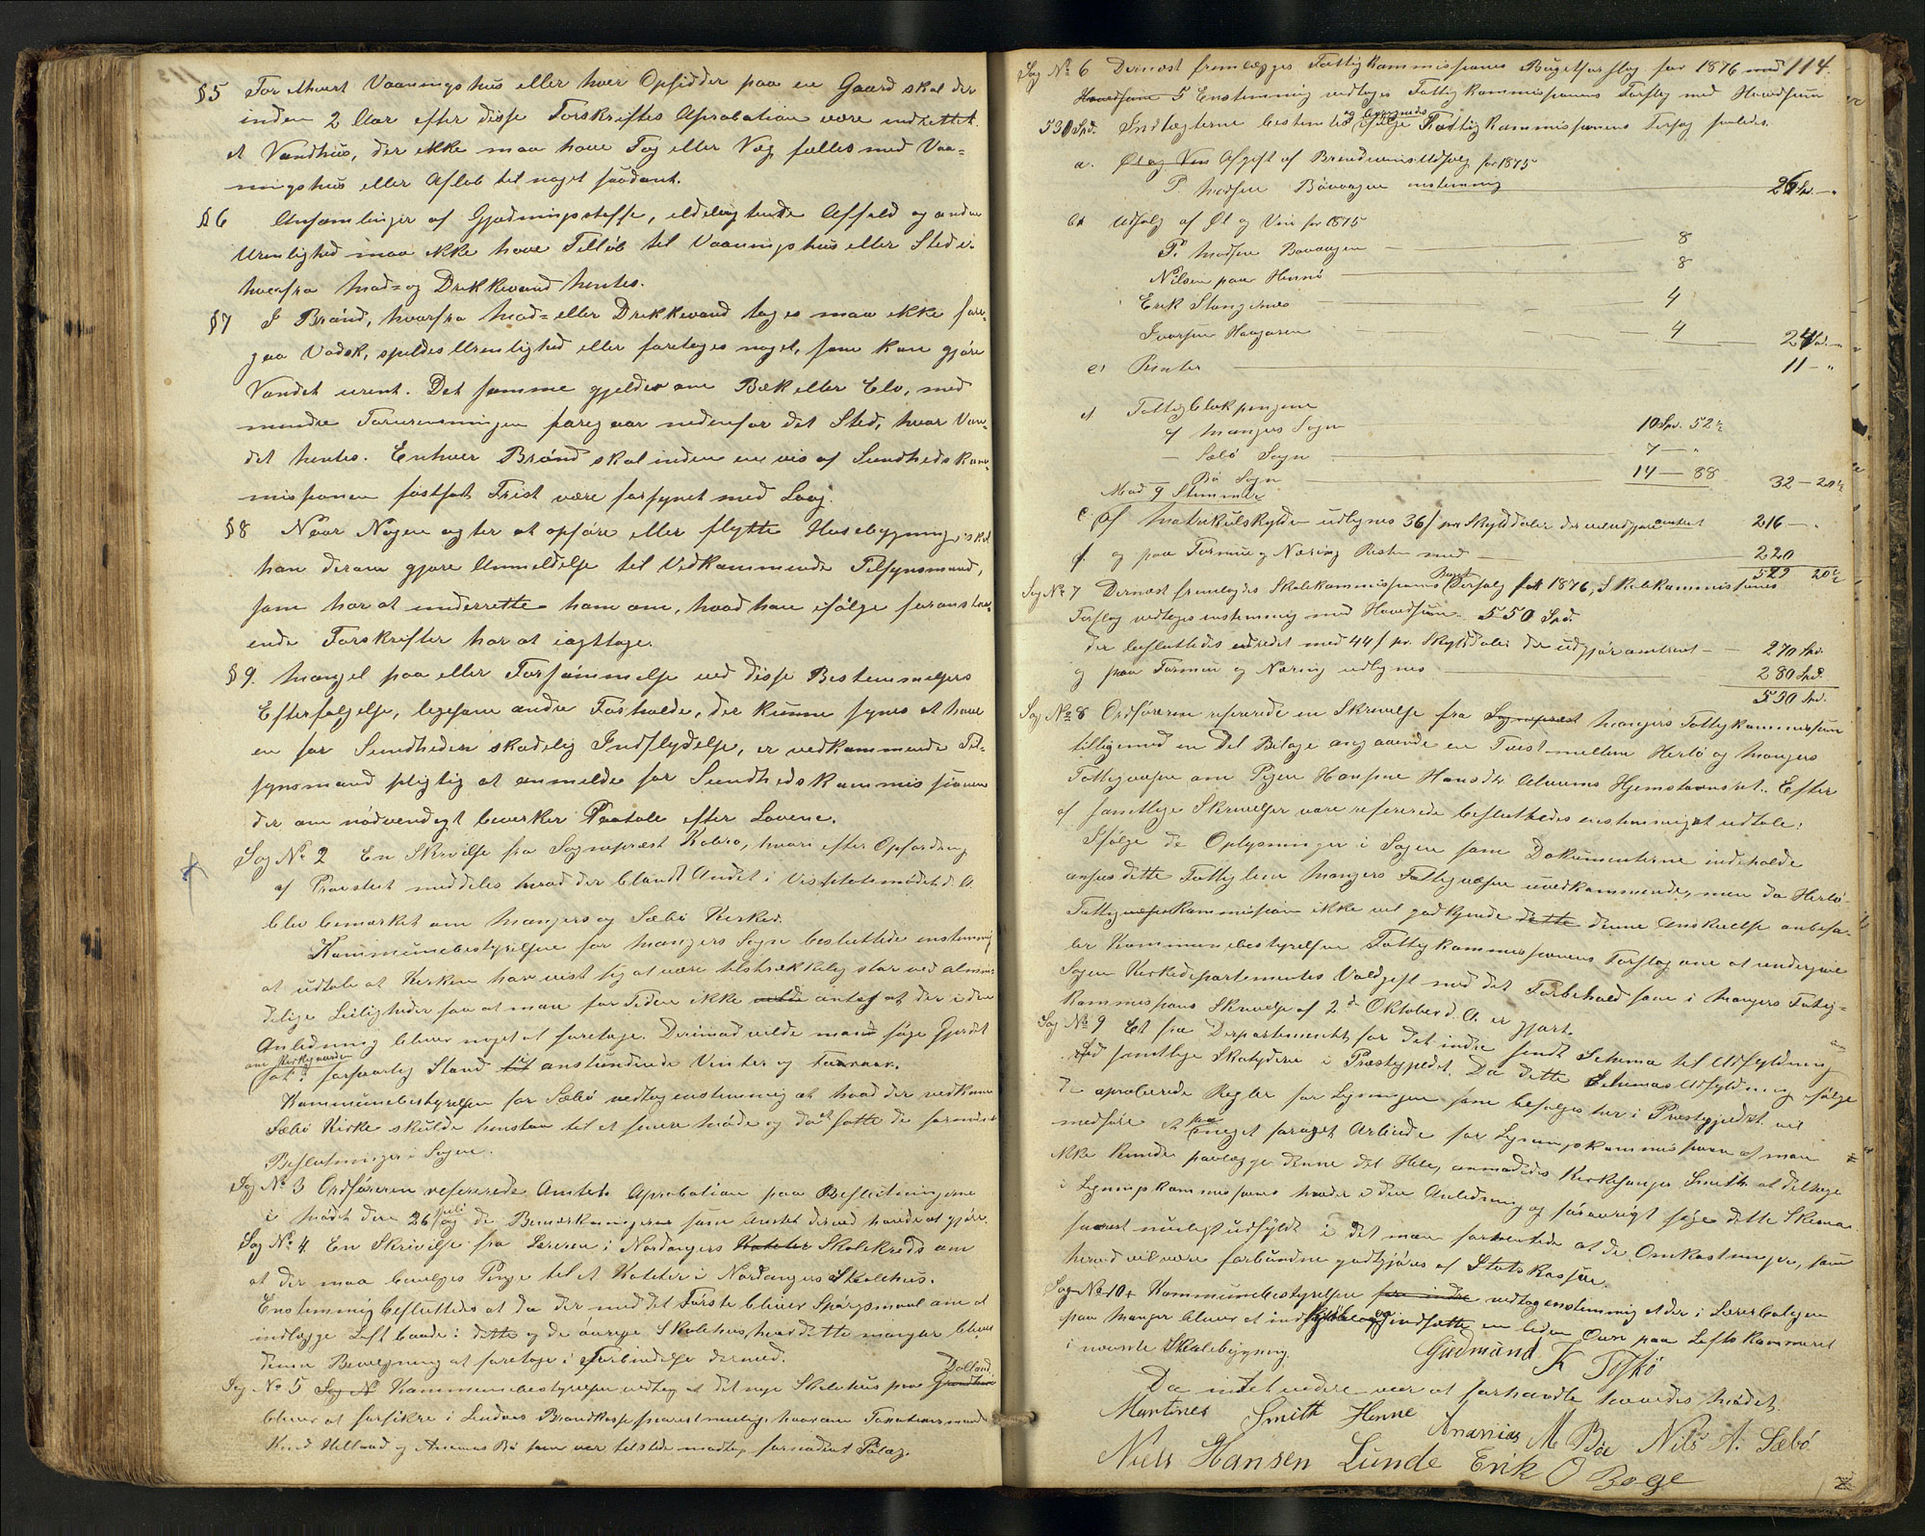 §5 For ethvert Vaaningshus eller hver Opsidder paa en Gaard skal der
inden 2 Aar efter disse Forskrifters Aprobation være indrettet
et Vandhus, der ikke maa have Tag eller Væg fælles med Vaa=
ningshus eller Afløb til noget saadant.
§6 Ansamlinger af Gjødningsstoffe, ildelugtende Affald og anden
Urenlighed maa ikke have Tilløb til Vaaningshus eller Sted i.
hvorfra Mad= og Drikkevand hentes.
§7 I Brønd, hvorfra Mad= eller Drikkevand tages maa ikke fore=
gaa Vadsk, spildes Urenlighed eller foretages noget, som kan gjøre
Vandet urent. Det samme gjelder om Bæk eller Elv, med
mindre Forureningen foregaar nedenfor det Sted, hvor Van=
det hentes. Enhver Brønd skal inden en vis af Sundhedskom=
missionen fastsat Frist være forsynet med Laag.
§8 Naar Nogen agter at opføre eller flytte Husebygninger skal
han derom gjøre Anmeldelse til Vedkommende Tilsynsmand,
som har at underrette ham om, hvad han ifølge foranstaa=
ende Forskrifter har at iagttage.
§9. Mangel paa eller Forsømmelse ved disse Bestemmelsers
Efterfølgelse, ligesom andre Forholde, der kunne synes at have
en for Sundheden skadelig Indflydelse, er vedkommende Til=
synsmand pligtig at anmelde for Sundhedskommissionen
der om nødvendigt bevirker Paatale efter Lovene.
Sag No 2 En Skrivelse fra Sogneprest Kobro, hvori efter Opfordring
af Provsten meddeles hvad der blandt Andet i Visitatsmødet d. A.
blev bemærket om Mangers og Sæbø Kirker.
Kommunebestyrelsen for Mangers Sogn besluttede enstemmig
at udtale at Kirken har vist sig at være tilstrækkelig stor ved almin=
delige Leiligheder saa at man for Tiden ikke antog at der i den
Anledning bliver noget at foretage. Derimod vilde man søge Gjerdet
om Kirkegaarden
sat i forsvarlig Stand til anstundende Vinter og Foraar.
Kommunebestyrelsen for Sæbø vedtog enstemmig at hvad der vedkom
Sæbø Kirke skulde henstaa til et senere Møde og da at fatte de fornødne
Beslutninger i Sagen.
Sag No 3 Ordføreren refererede Amtets Aprobation paa Beslutningerne
i Mødet den 26 Juli og de Bemærkninger som Amtet derved havde at gjøre.
Sag No 4. En Skrivelse fra Læreren i Nordangers Skolekreds om
at der maa bevilges Penge til et Kateter i Nordangers Skolehus.
Enstemmig besluttedes at da der med det Første bliver Spørgsmaal om at
indlægge Loft baade i dette og de øvrige Skolehus, hvor dette mangler bliver
denne Bevilgning at foretage i Forbindelse dermed.
Sag No 5 Kommunebestyrelsen vedtog at det nye Skolehus paa Dolland
bliver at forsikre i Lindaas Brandkasse snarest mulig, hvorom Taxationsmænd
Knud Helland og Ananias Bø som var tilstede modtog fornødent Pålæg.
114.
Sag No 6 Dernæst fremlægges Fattigkommissionens Bugetforslag for 1876 med
Hovedsum 5 Enstemmig vedtages Fattigkommissionens Forslag med Hovedsum
530 Spd. Indtægterne bestemtes og beregnedes ifølge Fattigkommissionens Forslag saaledes
a. Afgift af Brændevinsudsalg for 1875
P. Madsen Bøvaagen enstemmig 26 Spd. — "
b. Udsalg af Øl og Vin for 1875
P. Madsen Bøvaagen — 8
Nilsen paa Hernø — 8
Erik Stangenes — 4
Ivarsen Haagaren — 4 — 24 Spd. — "
c. Renter — 11 — "
d. Fattigblokpengene
af Mangers Sogn 10 Spd. 52½
— Sæbø Sogn 7 — "
Bø Sogn 14 — 88 32 — 20½
Mod 9 Stemmer
e. Af Matrikulskylden udlignes 36 ß pr Skylddaler der vil udgjøre omtrent 216 — "
f. og paa Formue og Næring Resten med — 220
529 20½
Sag No 7 Dernæst fremlagdes Skolekommissionens Buget Forslag for 1876, Skolekommissionens
Forslag vedtages enstemmig med Hovedsum. 550 Spd.
der besluttedes udredet med 44 ß pr. Skylddaler der udgjør omtrent — 270 Spd.
og paa Formue og Næring udlignes — 280 Spd.
550 Spd.
Sag No 8 Ordføreren refererede en Skrivelse fra Mangers Fattigkommission
tilligemed en Del Bilage angaaende en Tvist mellem Herlø og Mangers
Fattigvæsen om Pigen Hansine Hansdtr Alværns Hjemstavnsret. Efter
at samtlige Skrivelser vare refererede besluttedes enstemmigt at udtale:
Ifølge de Oplysninger i Sagen som Dokumenterne indeholde
ansees dette Fattiglem Mangers Fattigvæsen uvedkommende, men da Herlø
Fattigkommission ikke vil godkjende denne Anskuelse anbefa=
ler Kommunebestyrelsen Fattigkommissionens Forslag om at undergive
Sagen Kirkedepartementets Voldgift med det Forbehold som i Mangers Fattig=
kommissions Skrivelse af 2d Oktober d. A. er gjort.
Sag No 9 Et fra Departementet for det Indre sendt Schema til Udfyldning
ved samtlige Skatydere i Præstegjeldet. Da dette Schemas Udfyldning ifølge
de aproberede Regler for Ligningen som befølges her i Præstegjeldet vil
medføre et saa meget forøget Arbeide for Ligningskommissionen at man
ikke kunde paalægge denne det Hele, anmodedes Kirkesanger Smith at deltage
i Ligningskommissionens Møder i den Anledning og forøvrigt søge dette Skema
snarest muligt udfyldt i det man forventede at de Omkostninger, som
herved vil være forbundne godtgjøres af Statskassen.
Sag No 10. Kommunebestyrelsen vedtog enstemmig at der i Lærerboligen
paa Manger bliver at indkjøbe og indsætte en liden Ovn paa Loftskammeret
i nævnte Skolebygning.
Da intet videre var at forhandle hævedes Mødet.
Gudmund K Toskø
Martines Smith Henne Ananias M Bøe Nils A. Sæbø
Niels Hansen Lunde Erik O Boge